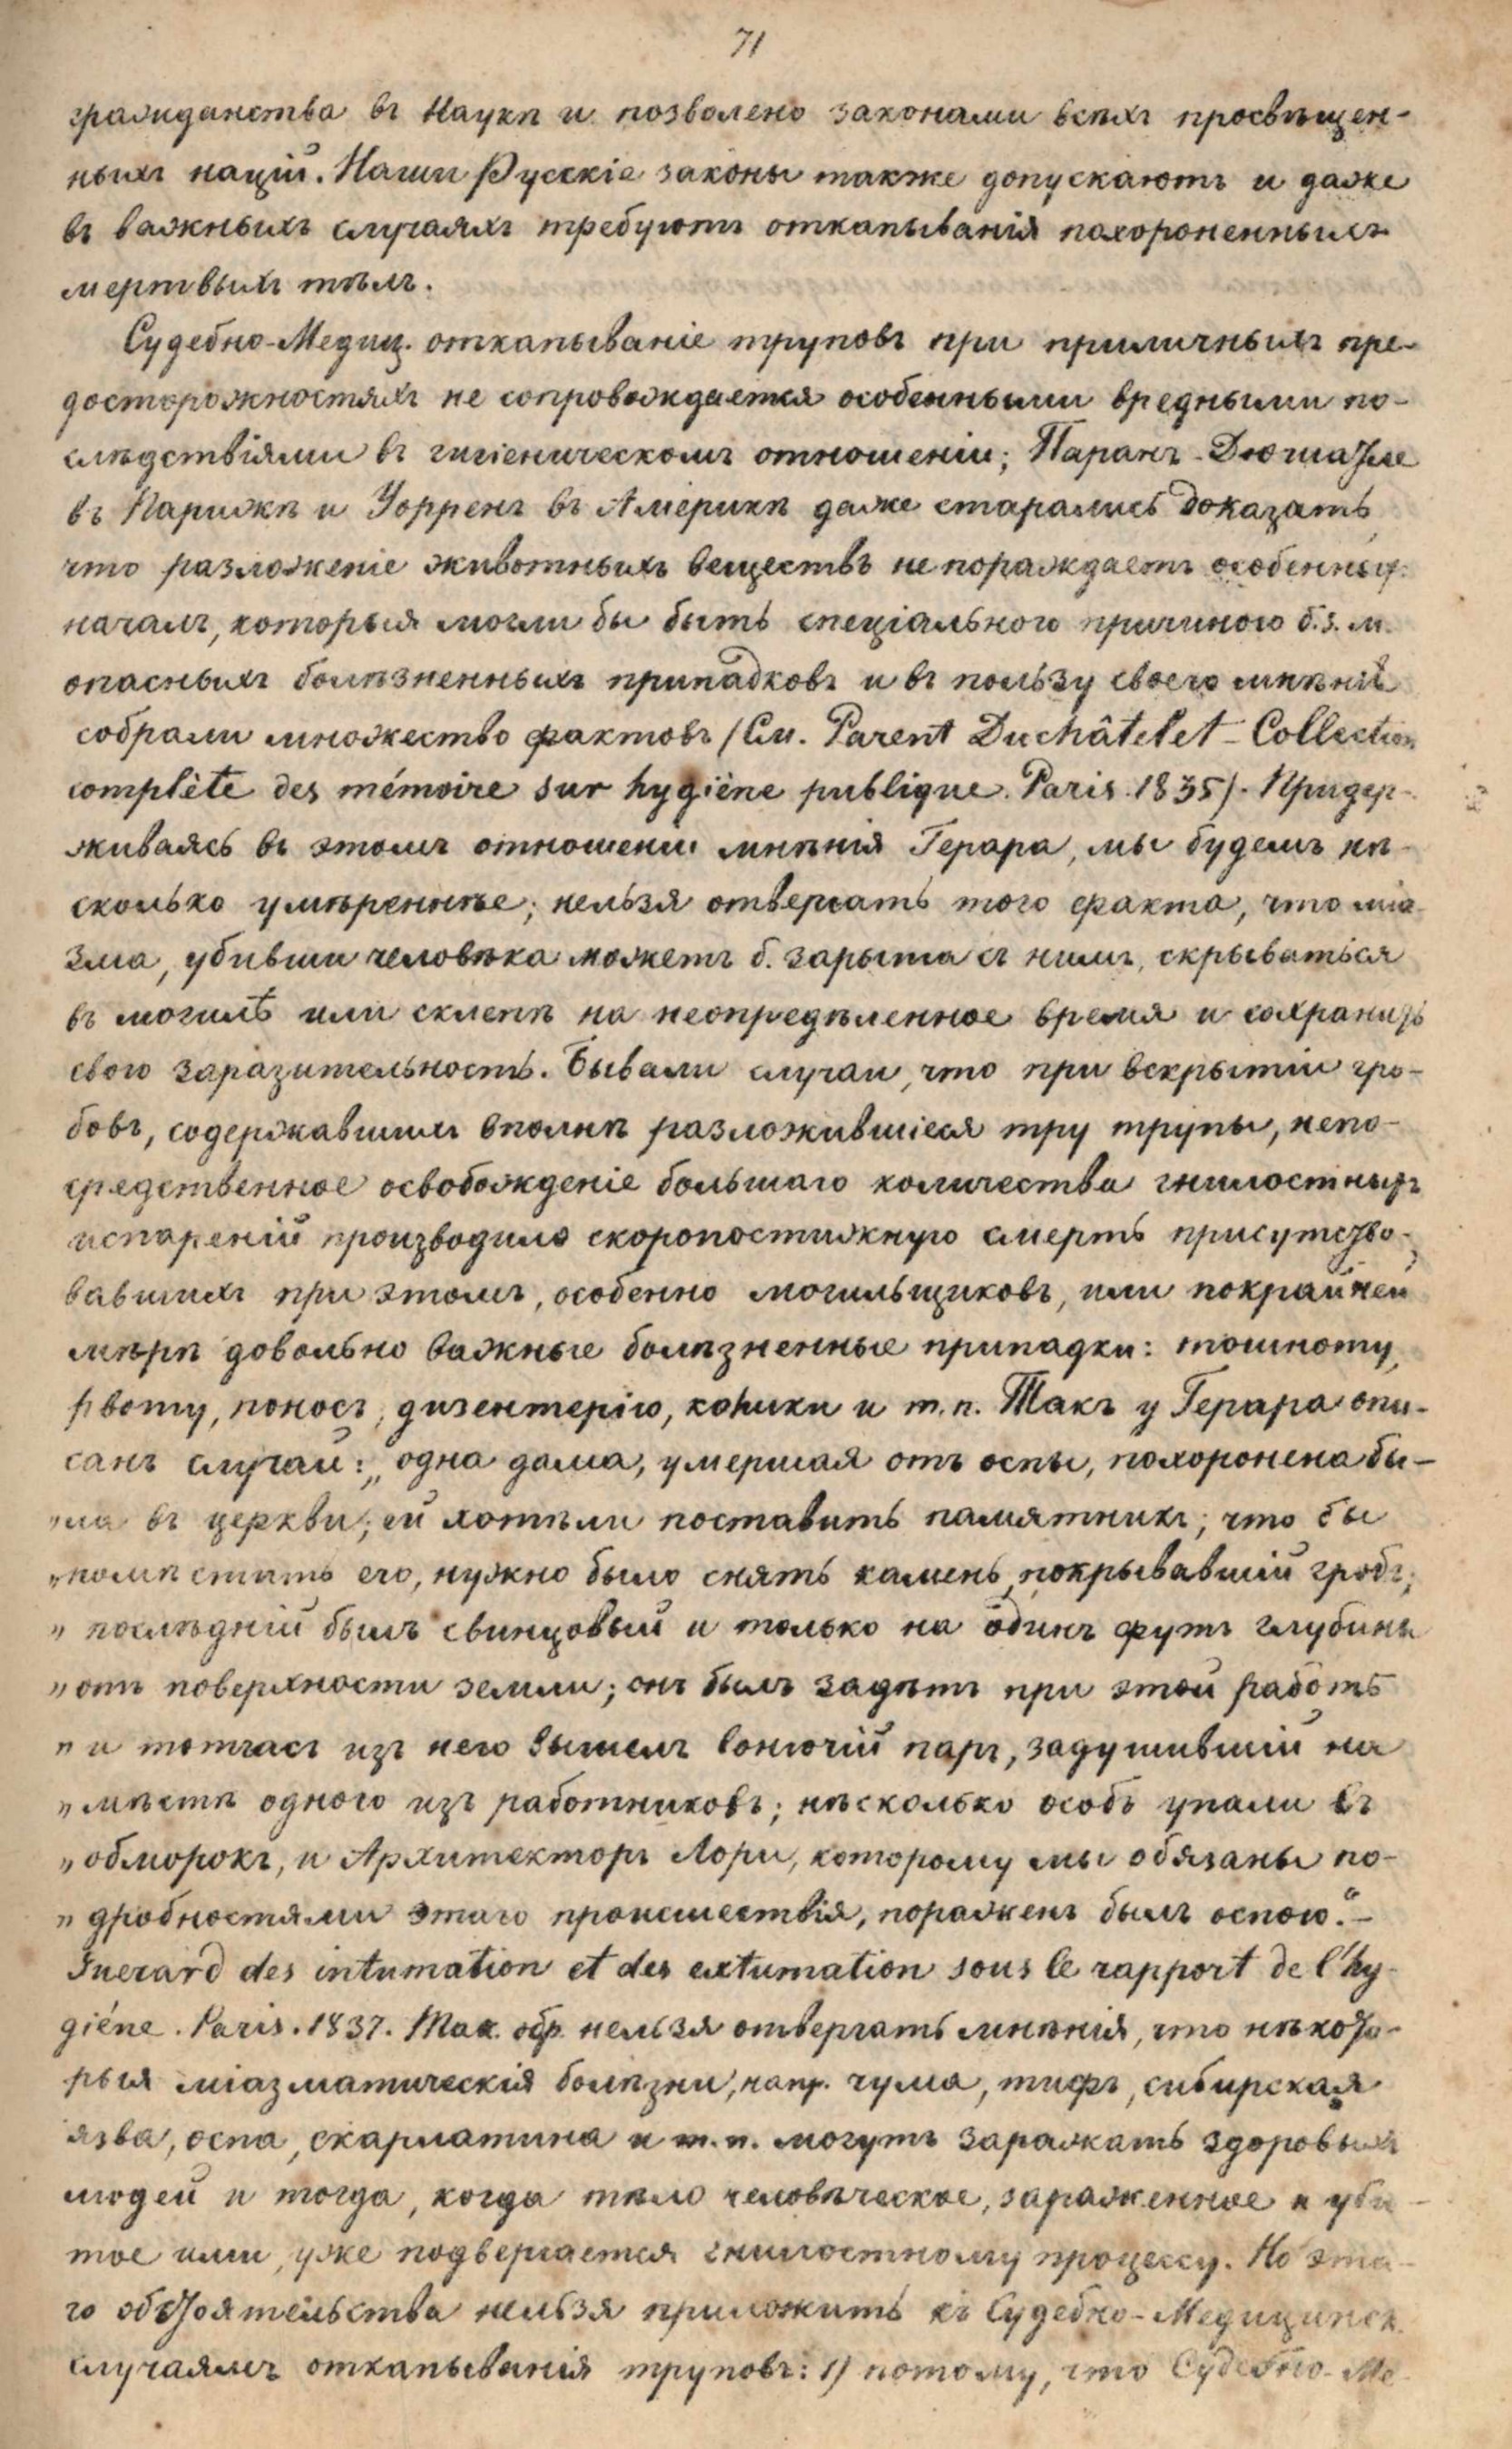 71
гражданства въ Наукѣ и позволено законами всѣхъ просвѣщен-
ныхъ націй. Наши Русскіе законы также допускаютъ и даже
въ важныхъ случаяхъ требуютъ откапыванія похороненныхъ
мертвыхъ тѣлъ.
Судебно-Медиц. откапываніе труповъ при приличныхъ пре-
досторожностяхъ не сопровождается особенными вредными по-
слѣдствіями въ гигіеническомъ отношеніи; Паранъ-Дюшатле
въ Парижѣ и Уорренъ въ Америкѣ даже старались доказать,
что разложеніе животныхъ веществъ не пораждаетъ особенныхъ
началъ, которыя могли бы быть спеціальною причиною б. з. м.
опасныхъ болѣзненныхъ припадковъ и въ пользу своего мнѣнія
собрали множество фактовъ /См. Parent Duchâtelet - Collection
complète des mémoire sur hygiène publique. Paris. 1835/. Придер-
живаясь въ этомъ отношеніи мнѣнія Герара, мы будемъ нѣ-
сколько умѣреннѣе; нельзя отвергать того факта, что міа-
зма, убивши человѣка можетъ б. зарыта съ нимъ, скрываться
въ могилѣ или склепѣ на неопредѣленное время и сохранить
свою заразительность. Бывали случаи, что при вскрытіи гро-
бовъ, содержавшихъ вполнѣ разложившіеся тру трупы, непо-
средственное освобожденіе большаго количества гнилостныхъ
испареній производило скоропостижную смерть присутство-
вавшихъ при этомъ, особенно могильщиковъ, или покрайней
мѣрѣ довольно важные болѣзненные припадки: тошноту,
рвоту, поносъ, дизентерію, колики и т. п. Такъ у Герара опи-
санъ случай: „одна дама, умершая отъ оспы, похоронена бы-
„ла въ церкви; ей хотѣли поставить памятникъ; что бы
„помѣстить его, нужно было снять камень, покрывавшій гробъ;
„послѣдній былъ свинцовый и только на одинъ футъ глубины
„отъ поверхности земли; онъ былъ задѣтъ при этой работѣ
„и тотчасъ изъ него вышелъ вонючій паръ, задушившій на
„мѣстѣ одного изъ работниковъ; нѣсколько особъ упали въ
„обморокъ, и Архитекторъ Лори, которому мы обязаны по-
„дробностями этаго происшествія, пораженъ былъ оспою.“ -
Guerard des intumation et des extumation sous le rapport de l'hy-
giéne. Paris. 1837. Так. обр. нельзя отвергать мнѣнія, что нѣкото-
рыя міазматическія болѣзни, напр. чума, тифъ, сибирская
язва, оспа, скарлатина и т. п. могутъ заражать здоровыхъ
людей и тогда, когда тѣло человѣческое, зараженное и уби-
тое ими, уже подвергается гнилостному процессу. Но эта-
го обстоятельства нельзя приложить къ Судебно-Медицинск.
случаямъ откапыванія труповъ: 1/ потому, что Судебно-Ме-